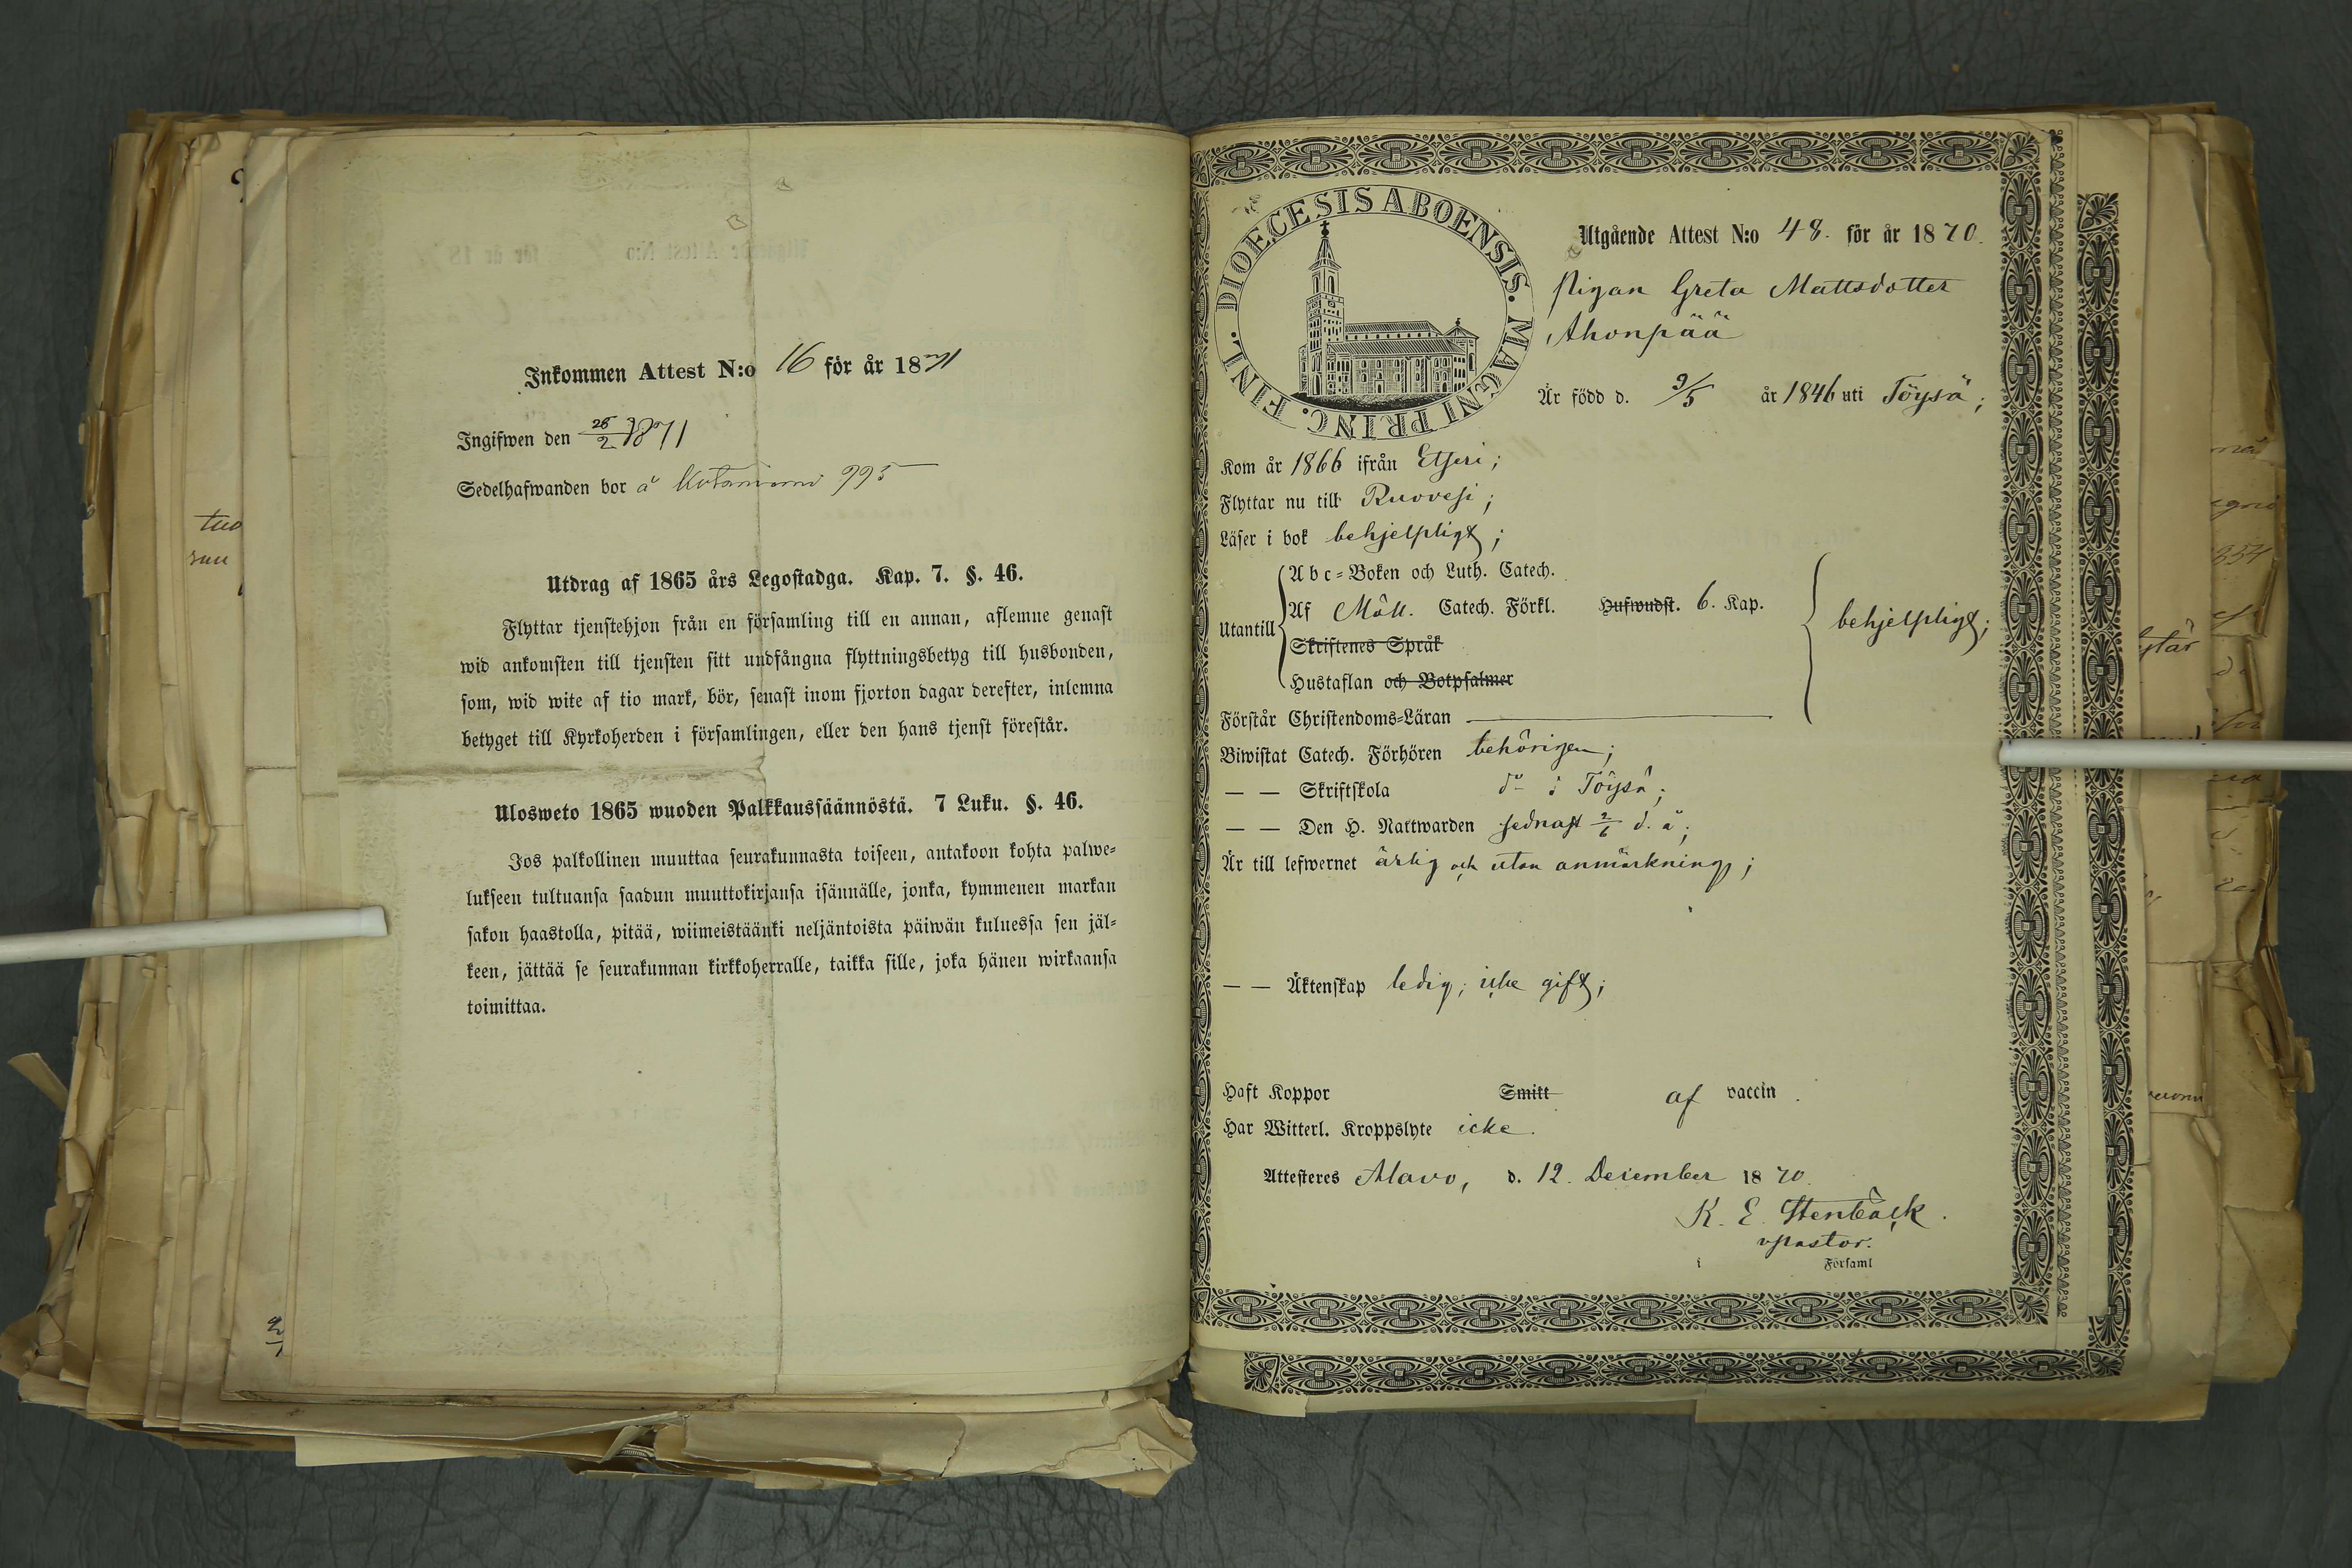 Inkommen Attest N:o 16 för år 1871
Ingifwen den 28/2 1871
Sedelhafwanden bor å Kotaniemi 995
Utdrag af 1865 års Legostadga. Kap. 7. §. 46.
Flyttar tjenstehjon från en församling till en annan, aflemne genast
wid ankomsten till tjensten sitt undfångna flyttningsbetyg till husbonden,
som, wid wite af tio mark, bör, senast inom fjorton dagar derefter, inlemna
betyget till Kyrkoherden i församlingen, eller den hans tjenst förestår.
Ulosweto 1865 wuoden Palkkaussäännöstä. 7 Luku. §. 46.
Jos palkollinen muuttaa seurakunnasta toiseen, antakoon kohta palwe-
lukseen tultuansa saadun muuttokirjansa isännälle, jonka, kymmenen markan
sakon haastolla, pitää, wiimeistäänki neljäntoista päiwän kuluessa sen jäl-
keen, jättää se seurakunnan kirkkoherralle, taikka sille, joka hänen wirkaansa
toimittaa.
DIOECESIS ABOENSIS. MAGNI PRINC. FINL.
Utgående Attest N:o 48. för år 1870.
Pigan Greta Mattsdotter
Ahonpää
Är född d. 9/5 år 1846 uti Töysä;
Kom år 1866 ifrån Etseri;
Flyttar nu till Ruovesi;
Läser i bok behjelpligt;
Utantill
Abc-Boken och Luth. Catech.
Af Möll. Catech. Förkl. Hufwudst. 6. Kap.
Skriftenes Språk
Hustaflan och Botpsalmer
behjelpligt;
Förstår Christendoms-Läran
Biwistat Catech. Förhören behörigen;
— — Skriftskola do i Töysä;
— — Den H. Nattwarden sednast 2/6 d. å;
Är till lefwernet ärlig och utan anmärkning;
— — Äktenskap ledig; icke gift;
Haft Koppor Smitt af vaccin.
Har Witterl. Kroppslyte icke.
Attesteres Alavo, d. 12. December 1870.
K. E. Stenbäck.
vpastor.
i Församl